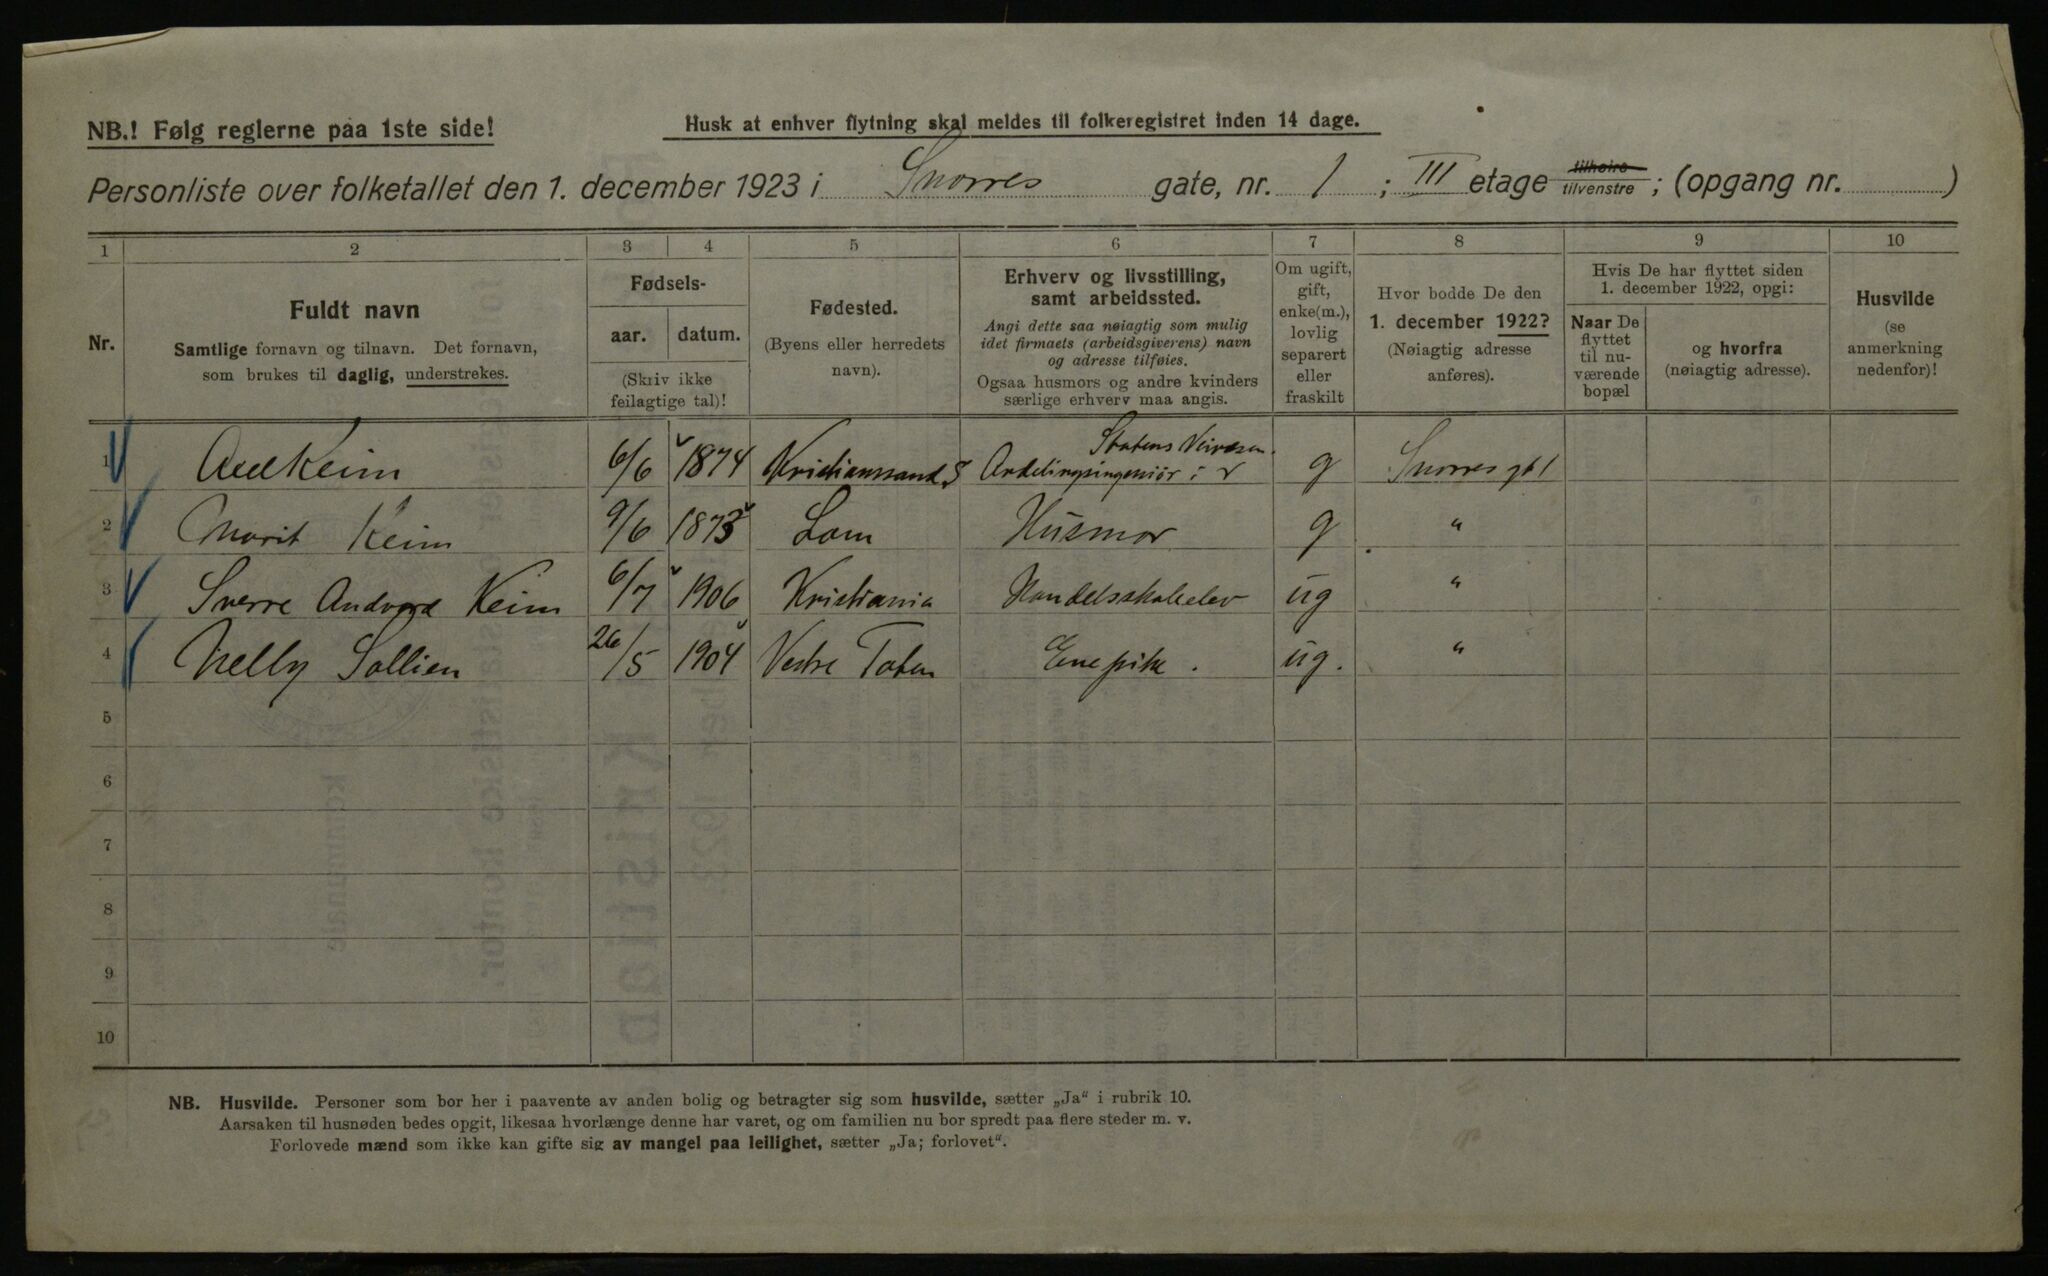 NB.! Følg reglerne paa 1ste side!
Husk at enhver flytning skal meldes til folkeregistret inden 14 dage.
Personliste over folketallet den 1. december 1923 i Snorres gate, nr. 1 ; III etage tilhøire tilvenstre ; (opgang nr. )
1 2 3 4 5 6 7 8 9 10
Nr.
Fuldt navn
Samtlige fornavn og tilnavn. Det fornavn,
som brukes til daglig, understrekes.
Fødsels-
aar. datum.
(Skriv ikke
feilagtige tal)!
Fødested.
(Byens eller herredets
navn).
Erhverv og livsstilling,
samt arbeidssted.
Angi dette saa nøiagtig som mulig
idet firmaets (arbeidsgiverens) navn
og adresse tilføies.
Ogsaa husmors og andre kvinders
særlige erhverv maa angis.
Om ugift,
gift,
enke(m.),
lovlig
separert
eller
fraskilt
Hvor bodde De den
1. december 1922?
(Nøiagtig adresse
anføres).
Hvis De har flyttet siden
1. december 1922, opgi:
Naar De
flyttet
til nu-
værende
bopæl
og hvorfra
(nøiagtig adresse).
Husvilde
(se
anmerkning
nedenfor)!
Statens Veivesen
1 Keim 6/6 1874 Kristianssand S Avdelingsingeniør i g Snorres gt 1
2 Marit Keim 9/6 1873 Lom Husmor g "
3 Sverre Andvord Keim 6/7 1906 Kristiania Handelsskoleelev ug "
4 Nelly Sollien 26/5 1904 Vestre Toten Enepike. ug. "
5
6
7
8
9
10
NB. Husvilde. Personer som bor her i paavente av anden bolig og betragter sig som husvilde, sætter „Ja" i rubrik 10.
Aarsaken til husnøden bedes opgit, likesaa hvorlænge denne har varet, og om familien nu bor spredt paa flere steder m. v.
Forlovede mænd som ikke kan gifte sig av mangel paa leilighet, sætter „Ja; forlovet".